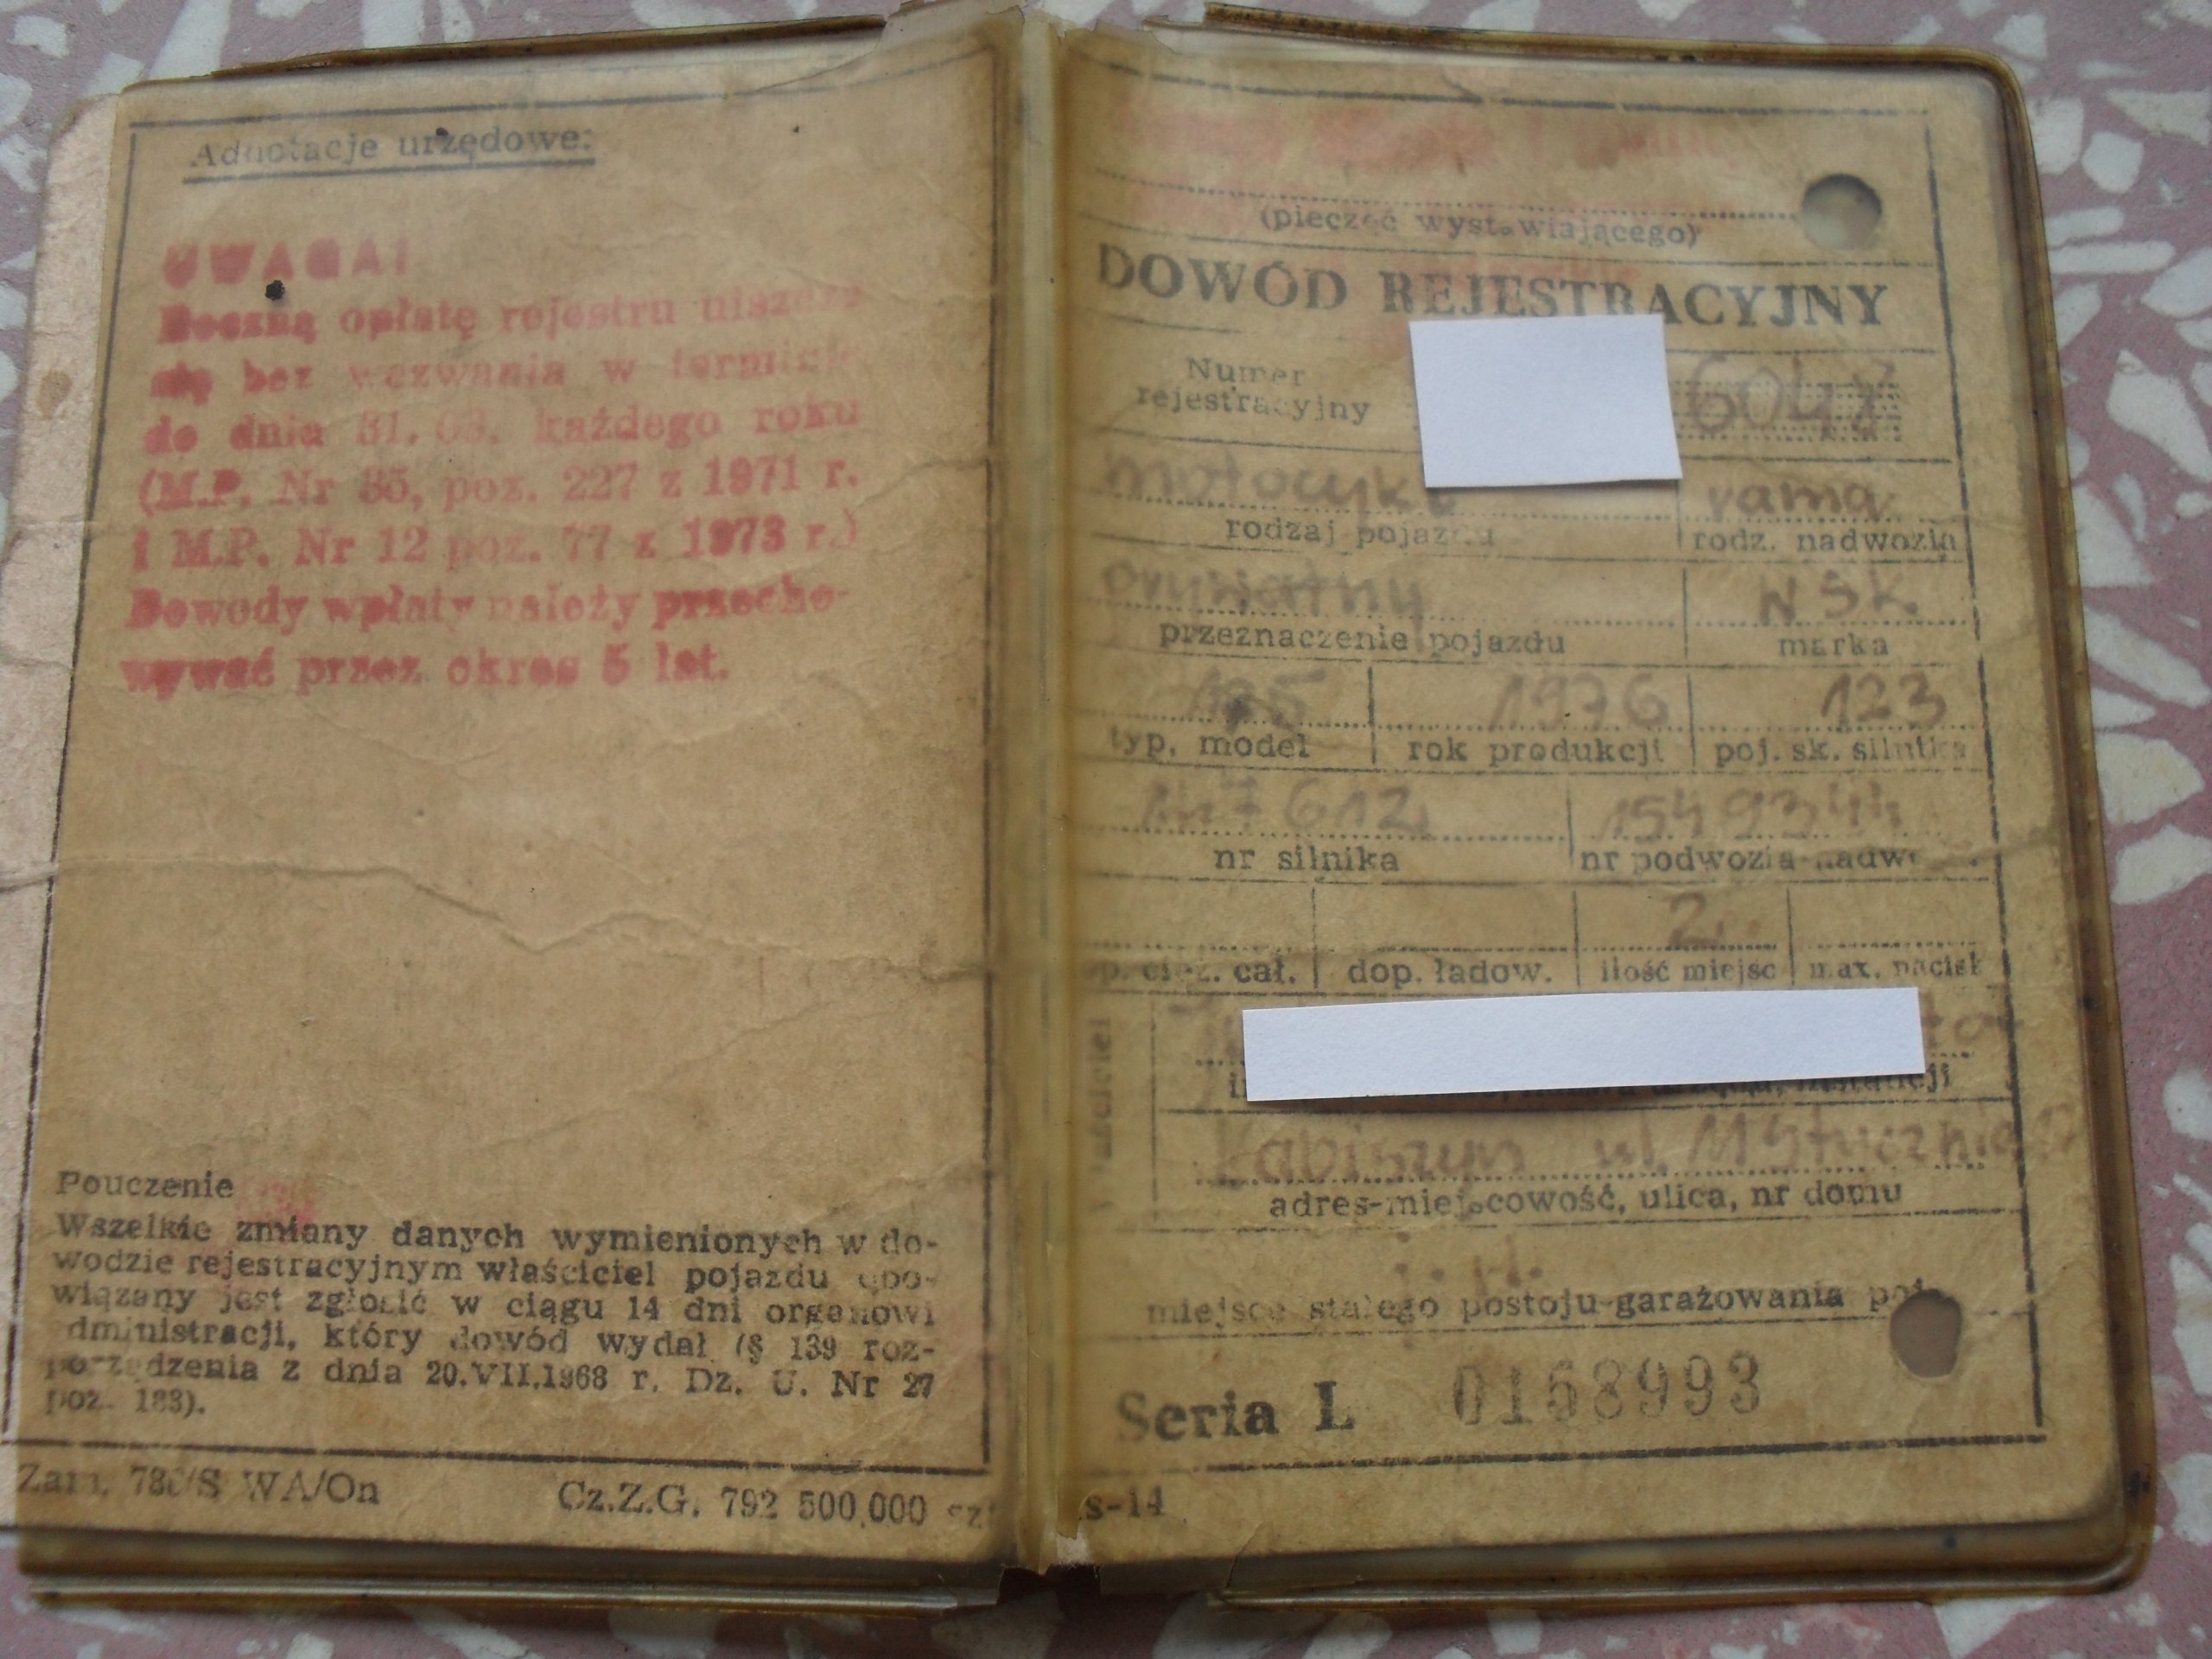 Adnotacje urzędowe:
UWAGA!
Roczną opłatę rejestru uiszcza
się bez wezwania w terminie
do dnia 31.03. każdego roku
(M.P. Nr 35, poz. 227 z 1971 r.
i M.P. Nr 12 poz. 77 z 1973 r.)
Dowody wpłaty należy przecho-
wywać przez okres 5 lat.
Pouczenie
Wszelkie zmiany danych wymienionych w do-
wodzie rejestracyjnym właściciel pojazdu obo-
wiązany jest zgłosić w ciągu 14 dni organowi
administracji, który dowód wydał (§ 139 roz-
porządzenia z dnia 20.VII.1968 r. Dz. U. Nr 27
poz. 183).
Zam. WA/On Cz.Z.G. 792 500.000 szt
(pieczęć wystawiającego)
DOWÓD REJESTRACYJNY
Numer
rejestracyjny
motocykl rama
rodzaj pojazdu rodz. nadwozia
prywatny WSK
przeznaczenie pojazdu marka
125 1976 123
typ, model rok produkcji poj. sk. silnika
612 1549344
nr silnika nr podwozia-nadwozia
2
dop. cięż. cał. dop. ładow. ilość miejsc max. nacisk
Właściciel
instytucji
Łabiszyn ul. 11 Stycznia
adres-miejscowość, ulica, nr domu
j. w.
miejsce stałego postoju-garażowania poj.
Seria L 0168993
s-14